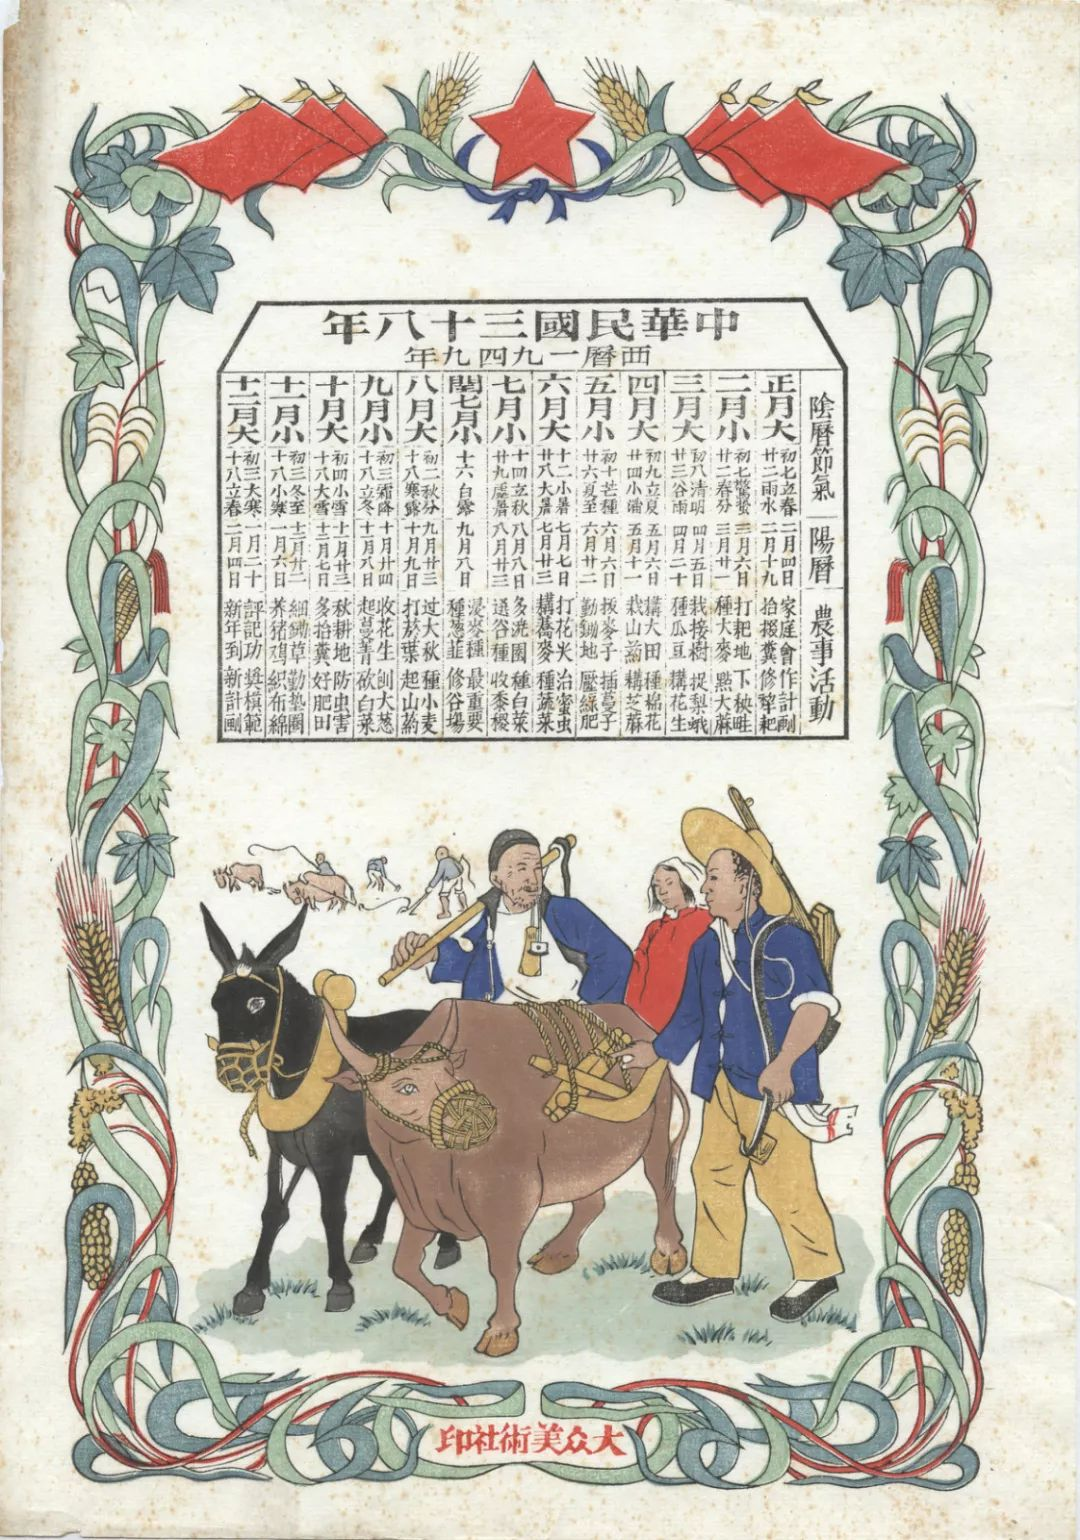 中華民國三十八年
西曆一九四九年
陰曆節氣 陽曆 農事活動
正月大
初七立春 二月四日 家庭會 作計劃
廿二雨水 二月十九 拾掇糞 修犂耙
二月小
初七驚蟄 三月六日 打耙地 下秧畦
廿二春分 三月廿一 種大麥 點大蔴
三月大
初八清明 四月五日 找接樹 捉梨蛾
廿三谷雨 四月二十 種瓜豆 耩花生
四月大
初九立夏 五月六日 耩大田 種棉花
廿四小滿 五月十一 栽山葯 耩芝蔴
五月小
初十芒種 六月六日 拔麥子 插蔓子
廿六夏至 六月廿二 勤鋤地 壓綠肥
六月大
十二小暑 七月七日 打花尖 治蜜虫
廿八大暑 七月廿三 耩蕎麥 種蔬菜
七月小
十四立秋 八月八日 多澆園 種白菜
廿九處暑 八月廿三 選谷種 收黍稷
閏七月小
十六白露 九月八日 浸麥種 最重要
種葱韭 修谷場
八月大
初二秋分 九月廿三 过大秋 種小麦
十八寒露 十月九日 打菸葉 起山葯
九月小
初三霜降 十月廿四 收花生 刨大葱
十八立冬 十一月八日 起蔓菁 砍白菜
十月大
初四小雪 十一月廿三 秋耕地 防虫害
十八大雪 十二月七日 多拾糞 好肥田
十一月小
初三冬至 十二月廿二 細鋤草 勤墊圈
十八小寒 一月六日 养猪鸡 織布綿
十二月大
初三大寒 一月二十 評記功 奬模範
十八立春 二月四日 新年到 新計劃
大众美術社印